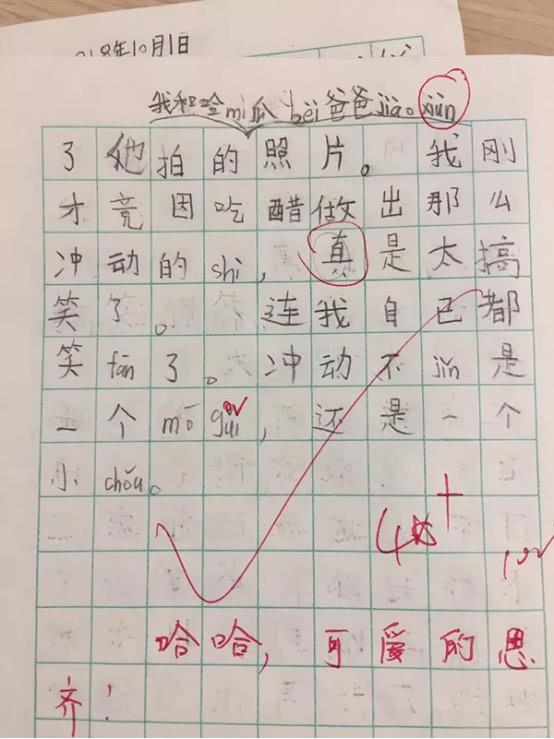 2018年10月1日
我和哈mì瓜bèi爸爸jiào xùn
了他拍的照片。我刚
才竟因吃醋做出那么
冲动的shì，真是太搞
笑了。连我自己都
笑fān了。冲动不jǐn是
一个mō guǐ，还是一个
小chǒu。
4★+
100
哈哈，可爱的思
齐！